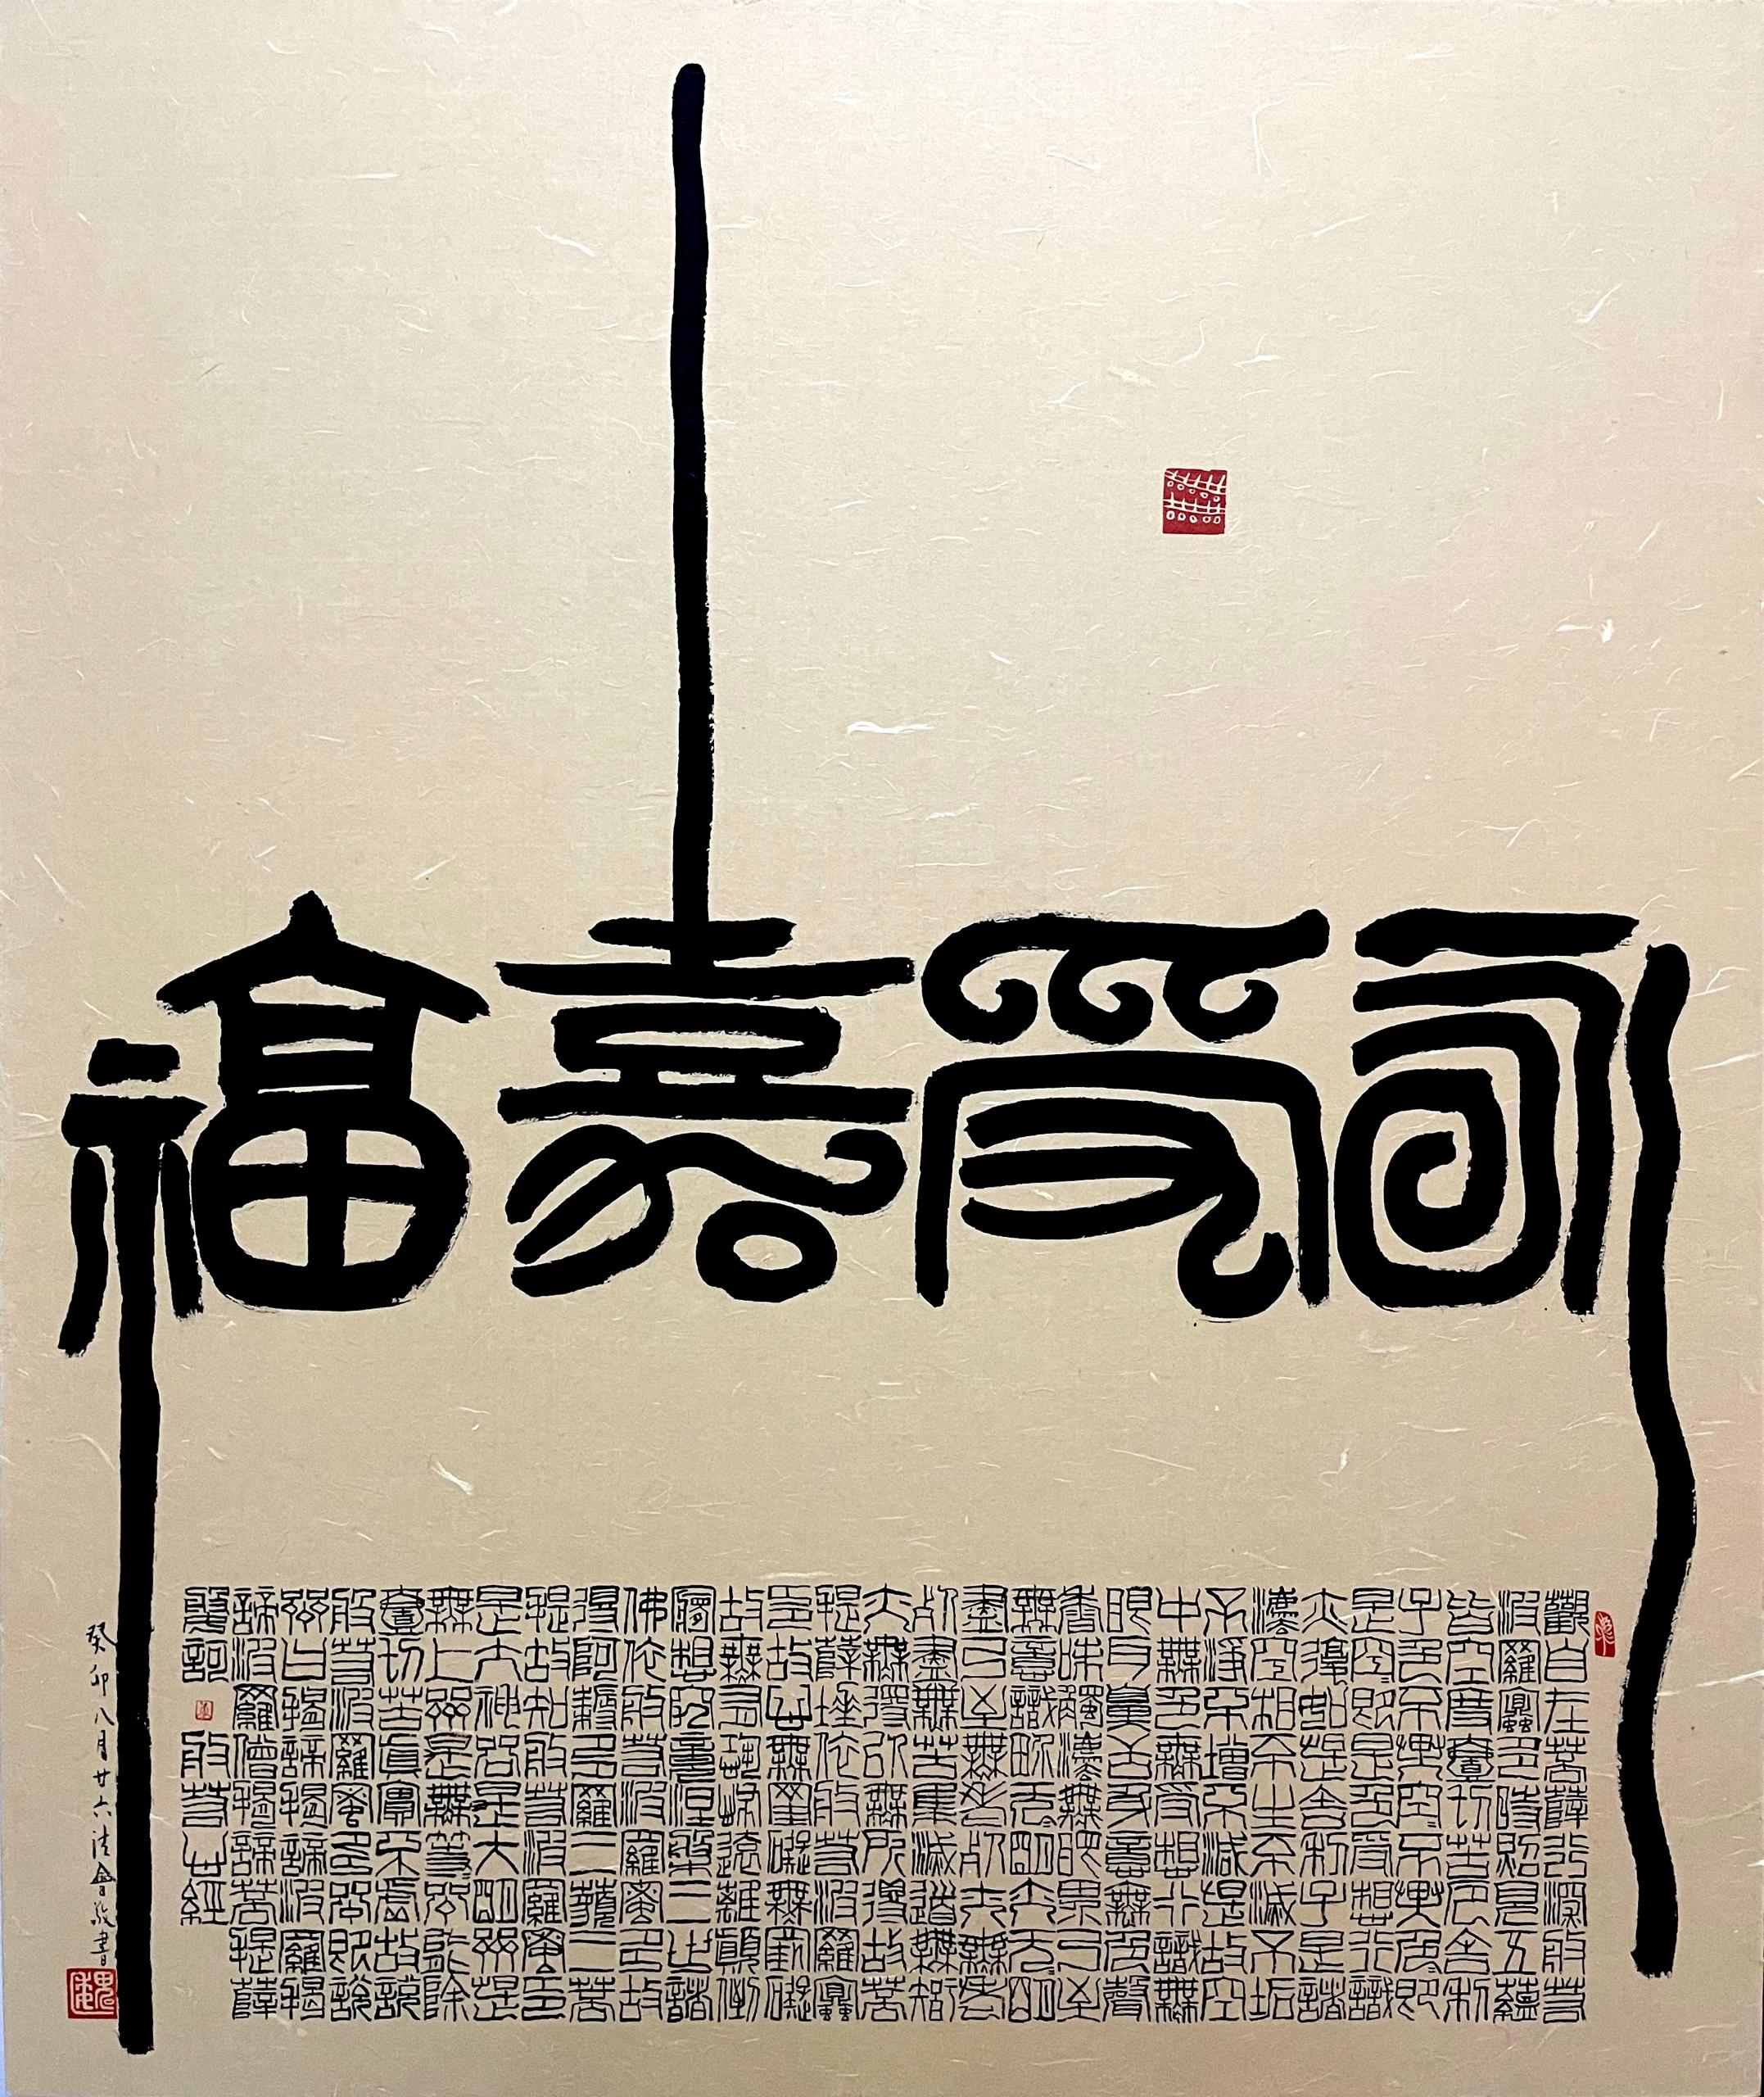 永受嘉福
觀自在菩薩行深般若
波羅蜜多時照見五蘊
皆空度壹切苦厄舍利
子色不異空不異色即
是空即是色受想行識
亦復如是舍利子是諸
法空相不生不滅不垢
不淨不增不減是故空
中無色無受想行識無
眼耳鼻舌身意無色聲
香味觸法無眼界乃至
無意識界无明亦无明
盡乃至無老死亦無老
死盡無苦集滅道無智
亦無得以無所得故菩
提薩埵依般若波羅蜜
多故心無罣礙無罣礙
故無有恐怖遠離顛倒
夢想究竟涅槃三世諸
佛依般若波羅蜜多故
得阿耨多羅三藐三菩
提故知般若波羅蜜多
是大神咒是大明咒是
無上咒是無等咒能除
壹切苦真實不虛故說
般若波羅蜜多咒即說
咒曰揭諦揭諦波羅揭
諦波羅僧揭諦菩提薩
婆訶 般若心經
癸卯八月廿六法會敬書